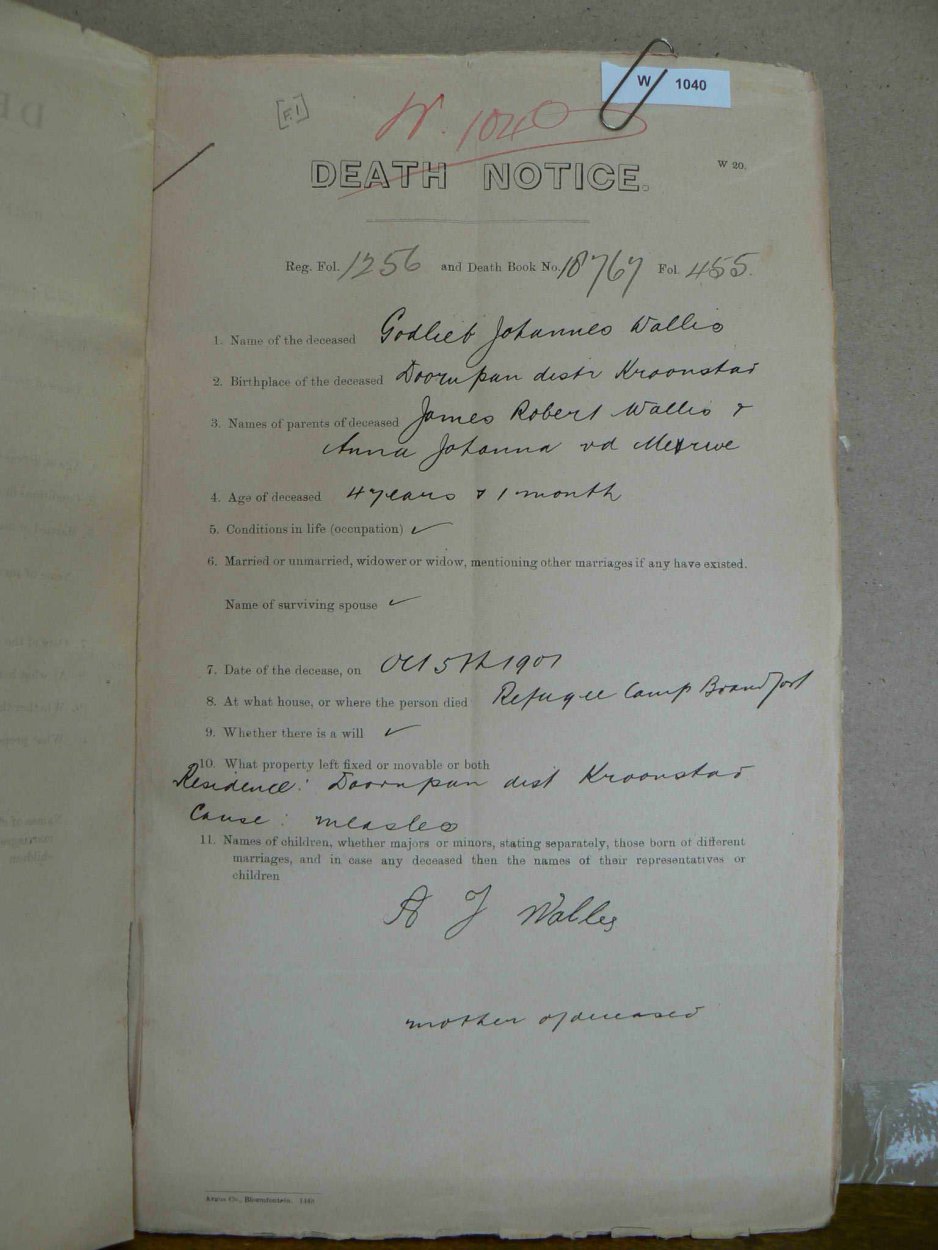 W 1040
[F.1]
W. 1040
DEATH NOTICE.
W 20.
Reg. Fol. 1256 and Death Book No. 18767 Fol. 455.
1. Name of the deceased Godlieb Johannes Wallis
2. Birthplace of the deceased Doornpan distr Kroonstad
3. Names of parents of deceased James Robert Wallis &
Anna Johanna vd Merwe
4. Age of deceased 4 years & 1 month
5. Conditions in life (occupation) ✓
6. Married or unmarried, widower or widow, mentioning other marriages if any have existed.
Name of surviving spouse ✓
7. Date of the decease, on Oct 5th 1901
8. At what house, or where the person died Refugee Camp Brandfort
9. Whether there is a will ✓
10. What property left fixed or movable or both
Residence: Doornpan dist Kroonstad
Cause: measles
11. Names of children, whether majors or minors, stating separately, those born of different
marriages, and in case any deceased then the names of their representatives or
children
A J Wallis
mother of deceased
Argus Co., Bloemfontein.